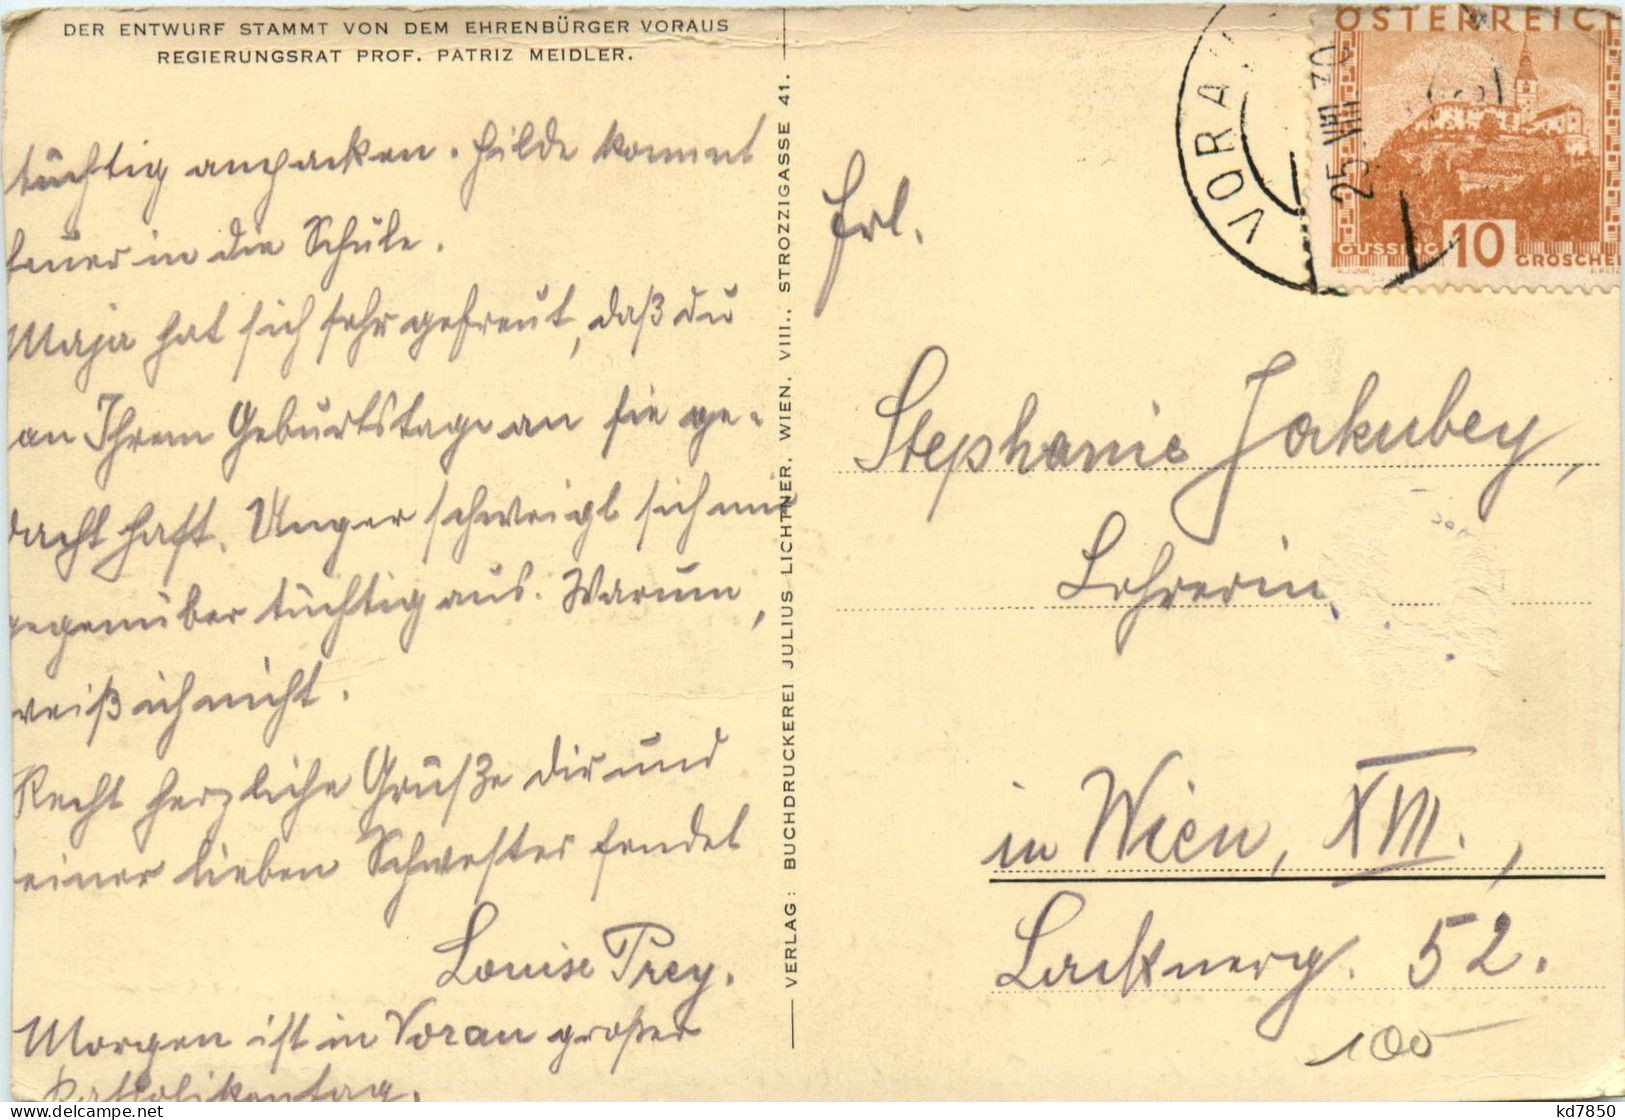 DER ENTWURF STAMMT VON DEM EHRENBÜRGER VORAUS
REGIERUNGSRAT PROF. PATRIZ MEIDLER.
tüchtig anpacken. Hilde kommt
heuer in die Schule.
Maja hat sich sehr gefreut, daß du
an Ihrem Geburtstage an sie ge-
dacht hast. Unger schweigt sich mir
gegenüber tüchtig aus. Warum,
weiß ich nicht.
Recht herzliche Grüße dir und
deiner lieben Schwester sendet
Louise Prey.
Morgen ist in Vorau großer
Katholikentag.
— VERLAG: BUCHDRUCKEREI JULIUS LICHTNER, WIEN, VIII., STROZZIGASSE 41. —
VORAU
25. VIII 30
ÖSTERREICH
GÜSSING 10 GROSCHEN
Frl.
Stephanie Jakubey,
Lehrerin
in Wien, XVII.,
Lacknerg. 52.
100
kd7850